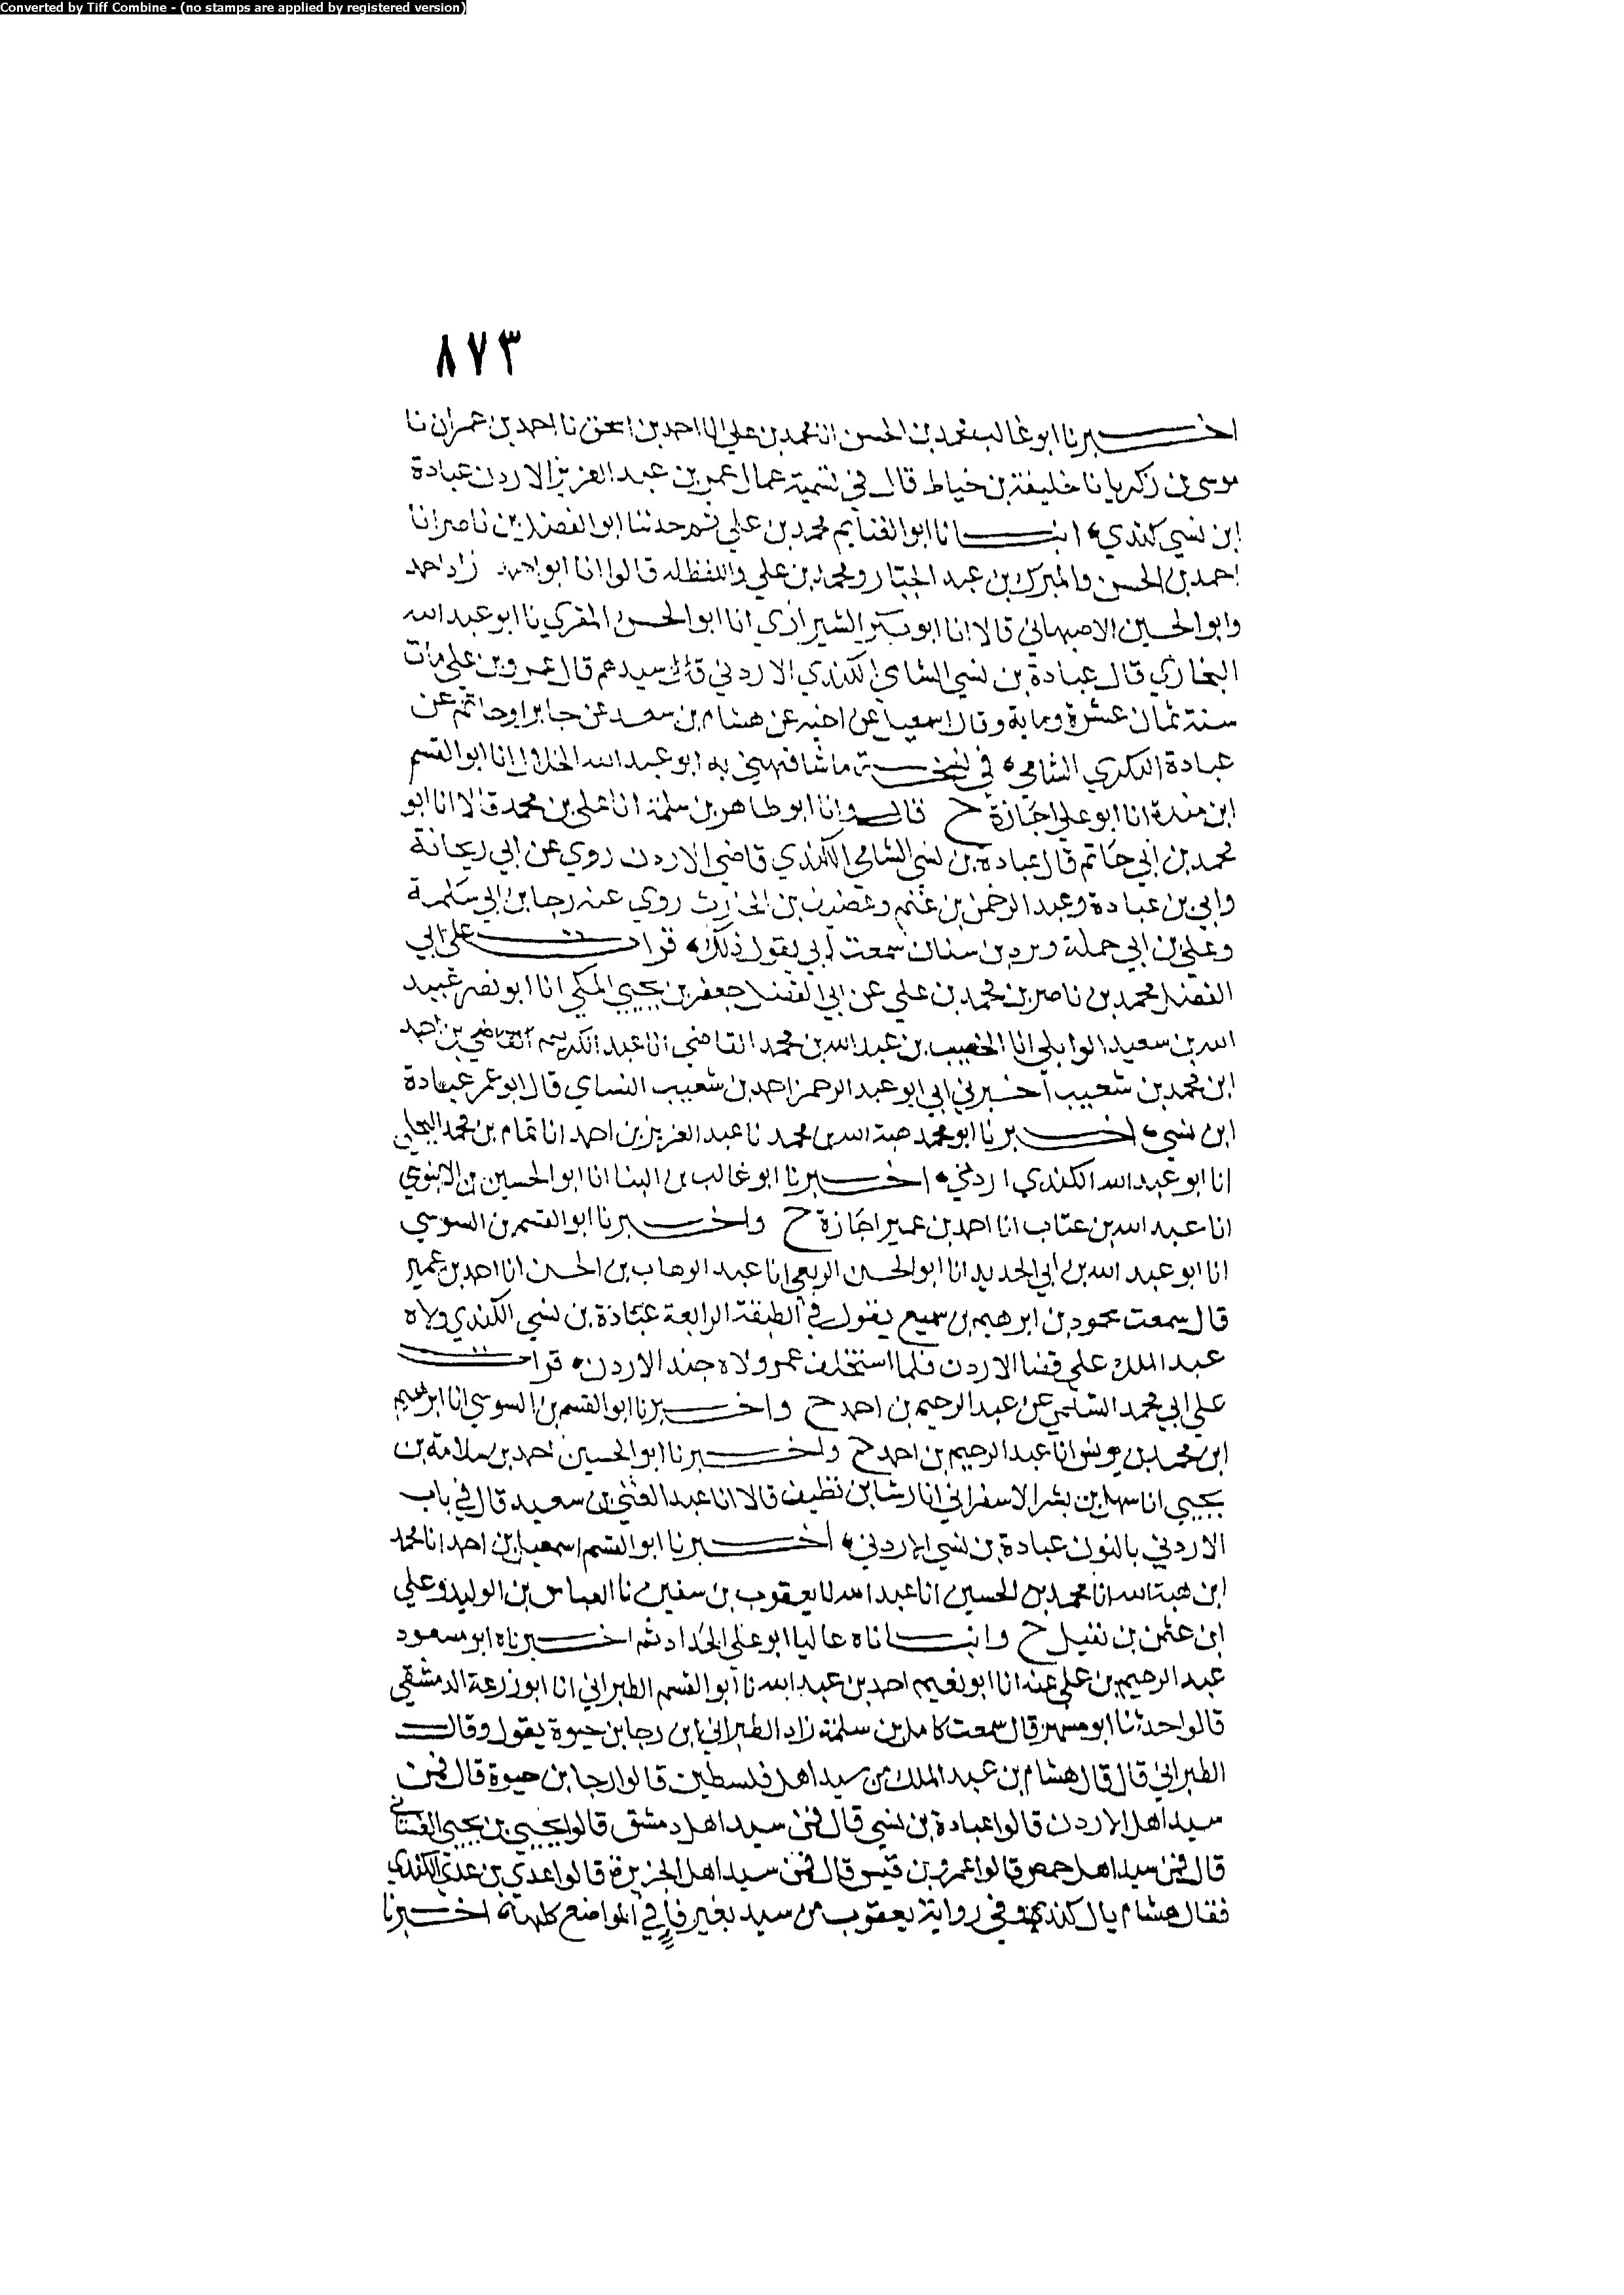 Converted by Tiff Combine - (no stamps are applied by registered version)
٨٧٣
اخبرنا ابو غالب محمد بن الحسن انا محمد بن علي انا احمد بن اسحق نا احمد بن عمران نا
موسى بن زكريا نا خليفة بن خياط قال في تسمية عمال عمر بن عبد العزيز الاردن عبادة
ابن نسي كندي انبانا ابو الغنايم محمد بن علي ثم حدثنا ابو الفضل بن ناصر انا
احمد بن الحسن والمبرك بن عبد الجبار ومحمد بن علي واللفظ له قالوا انا ابو احمد زاد احمد
وابو الحسين الاصبهاني قالا انا ابو بكر الشيرازي انا ابو الحسن المقري نا ابو عبد الله
البخاري قال عبادة بن نسي الشامي الكندي الاردني قال سيدهم قال عمرو بن علي مات
سنة ثمان عشرة وماية وقال اسمعيل عن اخيه عن هشام بن سعد عن جابر او حاتم عن
عبادة البكري الشامي في نسخة ما شافهني به ابو عبد الله الخلال انا ابو القسم
ابن مندة انا ابو علي اجازة ح قال وانا ابو طاهر بن سلمة انا علي بن محمد قالا انا ابو
محمد بن ابي حاتم قال عبادة بن نسي الشامي الكندي قاضي الاردن روي عن ابي ريحانة
وابي بن عبادة وعبد الرحمن بن غنم وغضيف بن الحارث روي عنه رجا بن ابي سلمة
وعلي بن ابي حملة وبرد بن سنان سمعت ابي يقول ذلك قرات على ابي
الفضل محمد بن ناصر بن محمد بن علي عن ابي الفضل جعفر بن يحيي المكي انا ابو نصر عبيد
الله بن سعيد الوايلي انا الخصيب بن عبد الله بن محمد القاضي انا عبد الكريم القاضي بن احمد
ابن محمد بن شعيب اخبرني ابي ابو عبد الرحمن احمد بن شعيب النساي قال ابو عمر عبادة
ابن نسي اخبرنا ابو محمد هبة الله بن محمد نا عبد العزيز بن احمد انا تمام بن محمد البجلي
انا ابو عبد الله الكندي اردني اخبرنا ابو غالب بن البنا انا ابو الحسين بن الابنوي
انا عبد الله بن عتاب انا احمد بن عمير اجازة ح واخبرنا ابو القسم بن السوسي
انا ابو عبد الله بن ابي الحديد انا ابو الحسن الربعي انا عبد الوهاب بن الحسن انا احمد بن عمير
قال سمعت محمود بن ابرهيم بن سميع يقول في الطبقة الرابعة عبادة بن نسي الكندي ولاه
عبد الملك على قضا الاردن فلما استخلف عمر ولاه جند الاردن قرات
علي ابي محمد السلمي عن عبد الرحيم بن احمد ح واخبرنا ابو القسم بن السوسي انا ابرهيم
ابن محمد بن يونس انا عبد الرحيم بن احمد ح واخبرنا ابو الحسين احمد بن سلامة بن
يحيي انا سهل بن بشر الاسفراني انا رشا بن نظيف قالا انا عبد الغني بن سعيد قال في باب
الاردني بالنون عبادة بن نسي الاردني اخبرنا ابو القسم اسمعيل بن احمد انا محمد
ابن هبة الله انا محمد بن الحسين انا عبد الله نا يعقوب بن سفين نا العباس بن الوليد وعلي
ابن عثمن بن نفيل ح وانبانا ه عاليا ابو علي الحداد ثم اخبرناه ابو مسعود
عبد الرحيم بن علي عنه انا ابو نعيم احمد بن عبد الله نا ابو القسم الطبراني انا ابو زرعة الدمشقي
قالوا حدثنا ابو مسهر قال سمعت كامل بن سلمة زاد الطبراني ابن رجا بن حيوة يقول وقال
الطبراني قال قال هشام بن عبد الملك من سيد اهل فلسطين قالوا رجا بن حيوة قال فمن
سيد اهل الاردن قالوا عبادة بن نسي قال فمن سيد اهل دمشق قالوا يحيي بن يحيي الغساني
قال فمن سيد اهل حمص قالوا عمرو بن قيس قال فمن سيد اهل الجزيرة قالوا عدي بن عدي الكندي
فقال هشام يال كندة وفي رواية يعقوب من سيد بغير فا في المواضع كلها اخبرنا